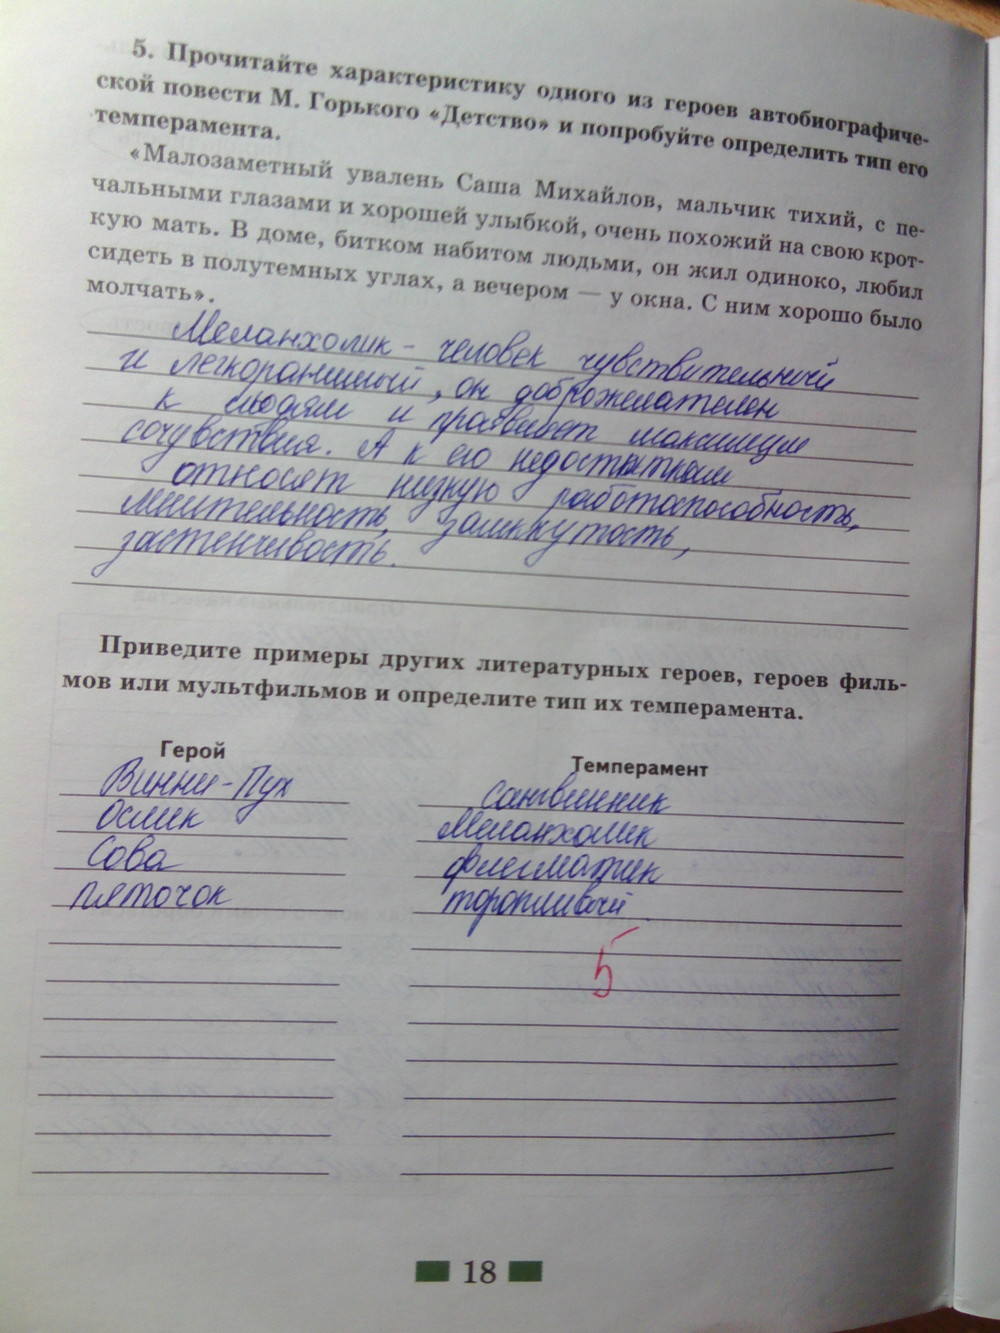 5. Прочитайте характеристику одного из героев автобиографиче-
ской повести М. Горького «Детство» и попробуйте определить тип его
темперамента.
«Малозаметный увалень Саша Михайлов, мальчик тихий, с пе-
чальными глазами и хорошей улыбкой, очень похожий на свою крот-
кую мать. В доме, битком набитом людьми, он жил одиноко, любил
сидеть в полутемных углах, а вечером — у окна. С ним хорошо было
молчать».
Меланхолик - человек чувствительный
и легкоранимый, он доброжелателен
к людям и проявляет максимум
сочувствия. А к его недостаткам
относят низкую работоспособность,
мнительность, замкнутость,
застенчивость.
Приведите примеры других литературных героев, героев филь-
мов или мультфильмов и определите тип их темперамента.
Герой Темперамент
Винни-Пух сангвинник
Ослик Меланхолик
Сова флегматик
пяточок торопливый
5
18